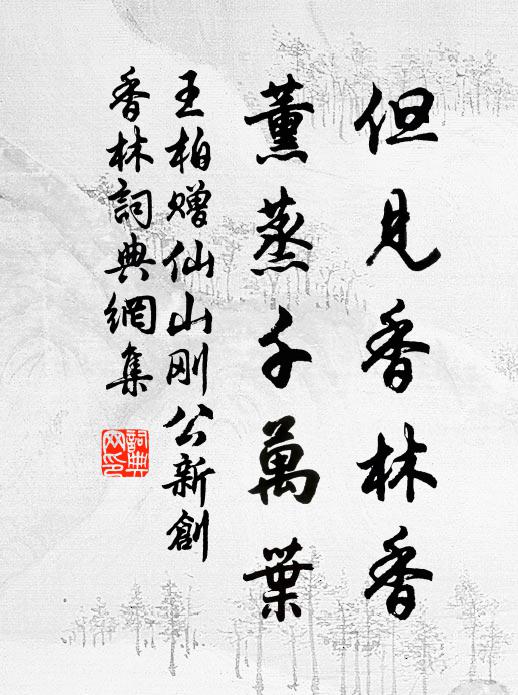 但見香林香
薰蒸千萬葉
王柏贈仙山刚公新創
香林詞典網集
詞典
网印